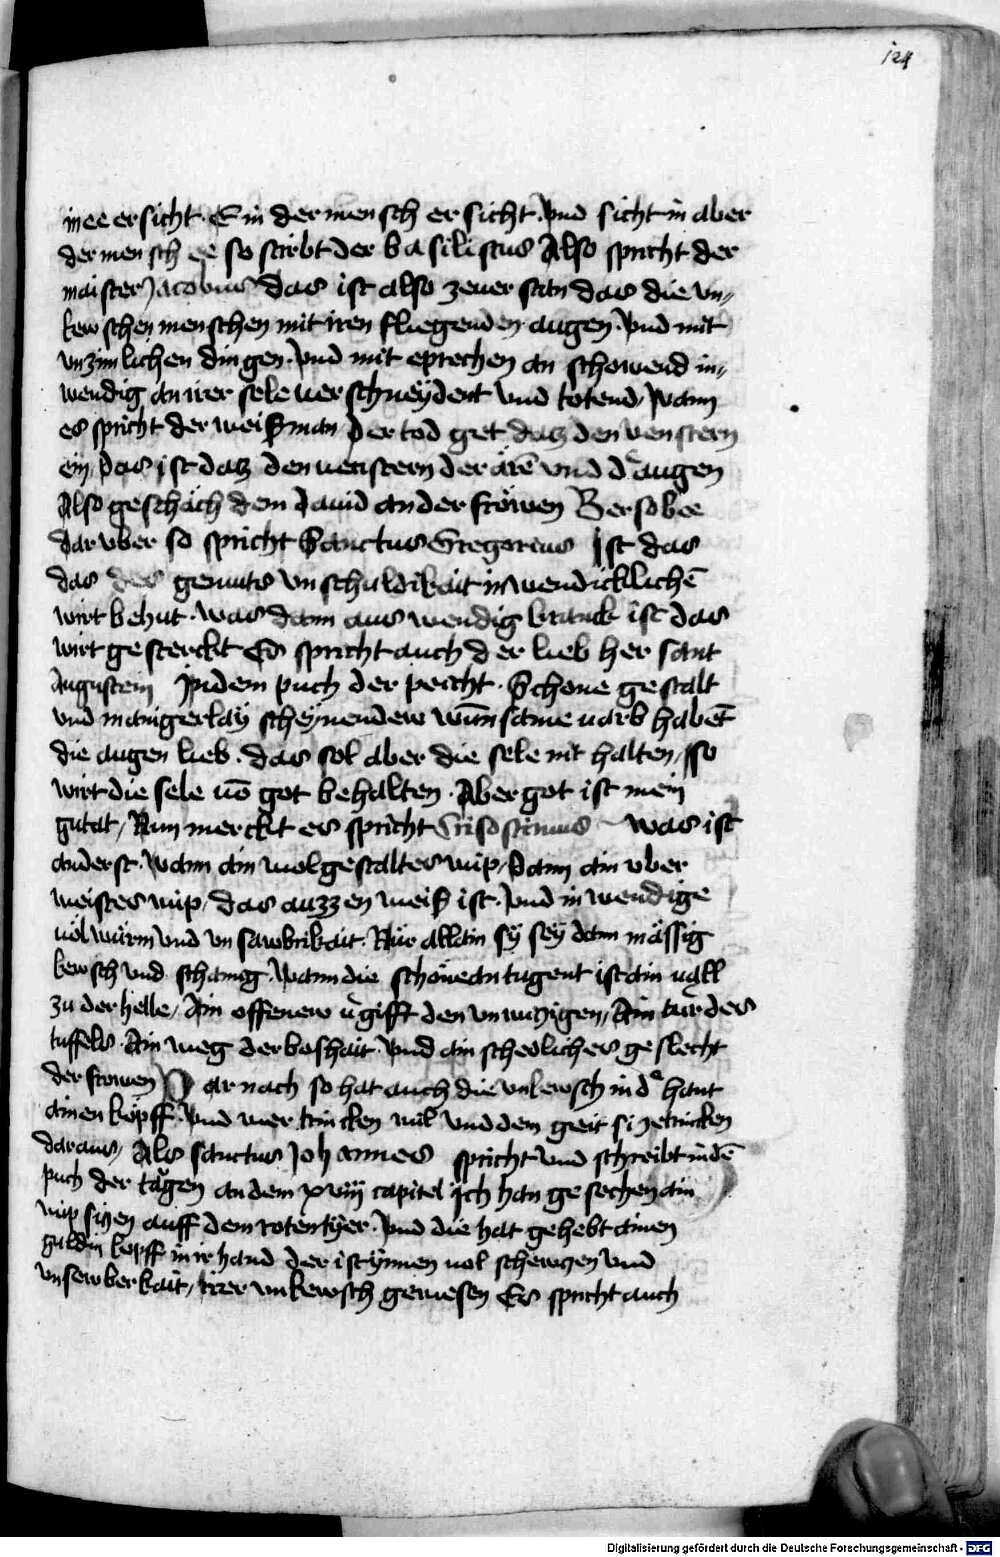 124
in ee ersicht. E in der mensch ersicht. Vnd sicht in aber
der mensch ee so stirbt der basiliscus Also spricht der
maister Jacobus das ist also zeuer stan das die vn„
kewschen menschen mit iren fliegenden augen. Vnd mit
vnzimlichen dingen. Vnd mit sprechen an schowend in„
wendig an irer sele uerschneydent vnd totend, Wann
es spricht der weiß man Der tod get datz den venstern
ein, Das ist datz den uenstern der orē vnd d augen
Also geschach dem Dauid an der frowen Bersobee
dar vber so spricht Sanctus Gregorius Ist das
das des gemuts vnschuldikait inwendicklichē
wirt behut. was dann auswendig kranck ist das
wirt gesterckt Es spricht auch der lieb her sant
Augustein In dem puch der peicht. Schone gestalt
vnd manigerlay scheynendew wunsame uarb habēt
die augen lieb. das sol aber die sele nit halten, so
wirt die sele uō got behalten. Aber got ist mein
gutat, Nun merckt es spricht Crisostimus was ist
anderst. Wann ain wolgestaltes wip, Dann ain vber
weistes wip, das auzzen weiß ist. Vnd inwendige
uol würm vnd vnsawbrikait. Nür allain sy sey dann mässig
kewsch vnd schamig. Wann die schone an tugent ist ain uall
zu der helle, Ain offenew ugifft den vnwizigen, Ain tür des
tuffels. Ain weg der boshait. Vnd ain schedliches geslecht
der frowen Dar nach so hat auch die vnkewsch in d hant
ainen kopff. Vnd wer trincken wil vnd dem geit si zetrincken
daraus, Als sanctus Johannes spricht vnd schreibt in dē
puch der tagen an dem xviij capitel Ich han gesechen ain
wip sizen auff dem roten tyer. Vnd die hat gehebt ainen
guldin kopff in ir hand der ist ynnen uol schewzen vnd
vnsewberkait, irer vnkewsch gewesen Es spricht auch
Digitalisierung gefördert durch die Deutsche Forschungsgemeinschaft - DFG